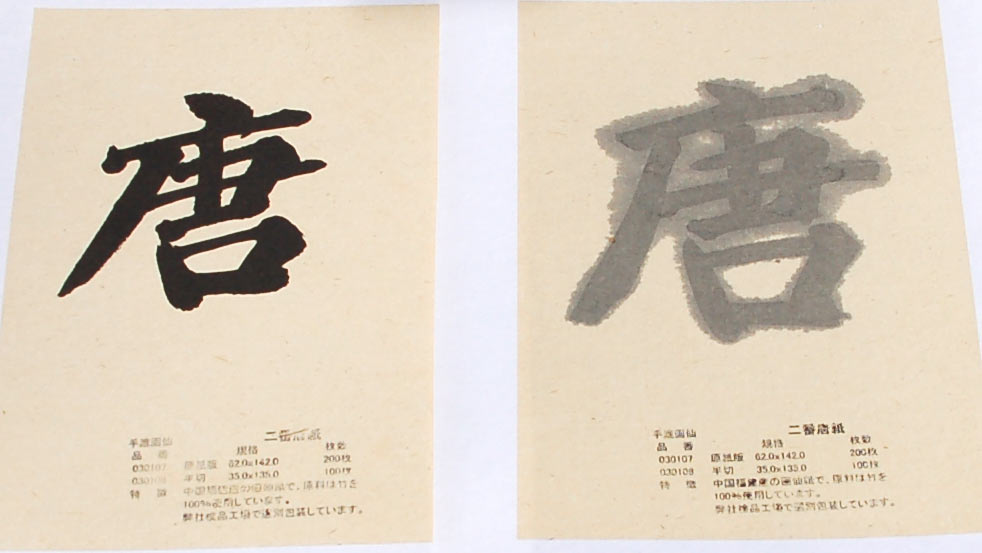 唐
手漉画仙 二番唐紙
品番 規格 枚数
030107 原紙版 62.0x142.0 200枚
030108 半切 35.0x135.0 100枚
特徴 中国福建産の画仙紙で、原料は竹を
100%使用しています。
弊社検品工場で選別包装しています。
唐
手漉画仙 二番唐紙
品番 規格 枚数
030107 原紙版 62.0x142.0 200枚
030108 半切 35.0x135.0 100枚
特徴 中国福建産の画仙紙で、原料は竹を
100%使用しています。
弊社検品工場で選別包装しています。